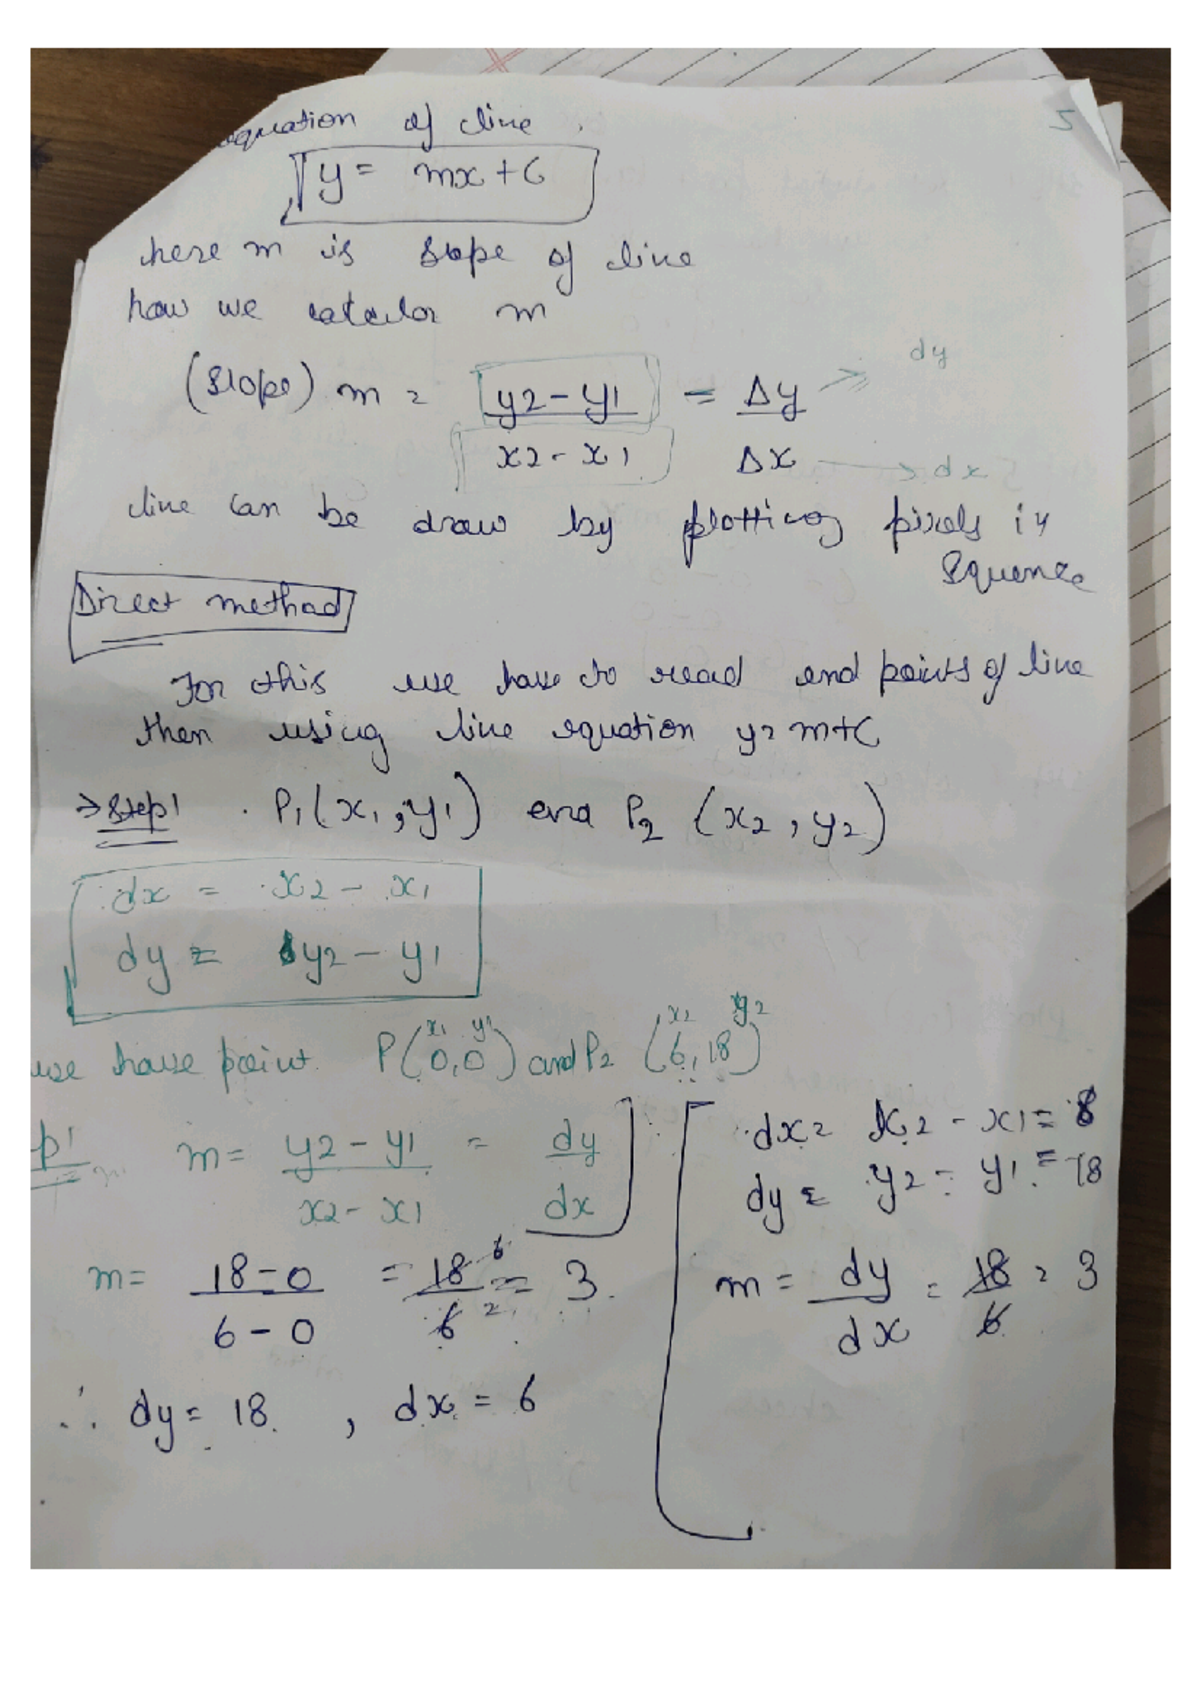 equation of line
y = mx + C
here m is slope of line
how we m
(slope) m = y2 - y1 / x2 - x1 = Δy / Δx
→ dy
→ dx
line can be draw by plotting pixels in
sequence
Direct method
For this we have to read end points of line
then using line equation y = m+C
⇒ Step 1 . P1 (x1, y1) end P2 (x2, y2)
dx = x2 - x1
dy = y2 - y1
x1 y1 x2 y2
we have point P(0,0) and P2 (6,18)
p1 m = y2 - y1 / x2 - x1 = dy / dx
dx = x2 - x1 =
dy = y2 - y1 = 18
m = 18 - 0 / 6 - 0 = 18 / 6 = 3
m = dy / dx = 18 / 6 = 3
∴ dy = 18 , dx = 6